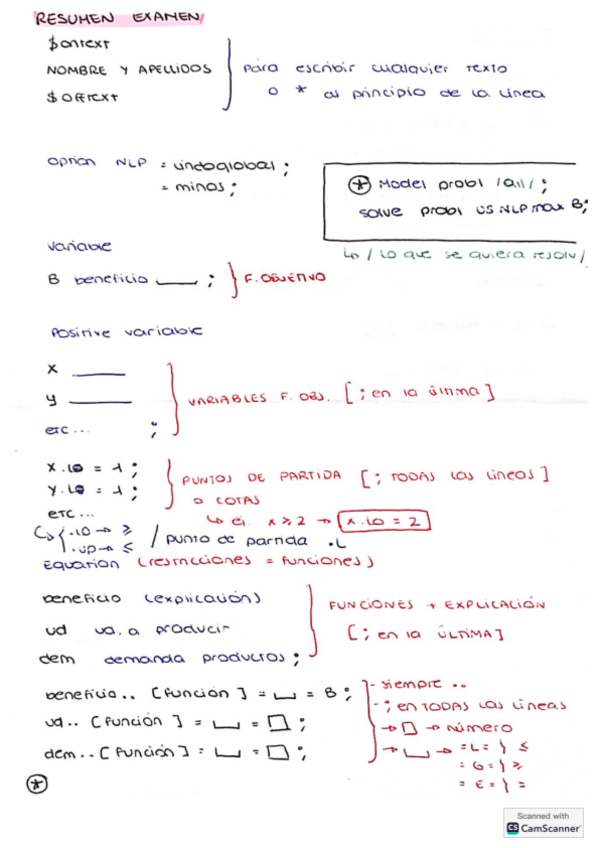 RESUMEN EXAMEN
$ontext
NOMBRE Y APELLIDOS
$offtext
para escribir cualquier texto
o * al principio de la línea
option NLP = lindoglobal ;
= minos ;
* Model prob1 /all/ ;
solve prob1 US NLP max B;
↳ / lo que se quiera resolv/
variable
B beneficio ___ ; } F. OBJETIVO
Positive variable
x ___
y ___
etc... ;
VARIABLES F. OBJ. [ ; en la última ]
x.lo = 1 ;
y.lo = 1 ;
etc...
PUNTOS DE PARTIDA [ ; TODAS las líneas ]
o COTAS
↳ ej. x ≥ 2 → x.lo = 2
↳ { .lo → ≥
.up → ≤
/ punto de partida .L
Equation (restricciones = funciones)
beneficio (explicación)
ud ud. a producir
dem demanda productos ;
FUNCIONES + EXPLICACIÓN
[ ; en la ÚLTIMA ]
beneficio.. [función] = ⌴ = B ;
ud.. [función] = ⌴ = □ ;
dem.. [función] = ⌴ = □ ;
- siempre ..
- ; en TODAS las líneas
→ □ → número
→ ⌴ → =L= } ≤
=G= } ≥
=E= } =
*
Scanned with
CS CamScanner